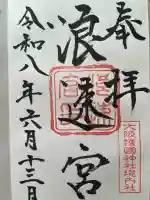 奉拝
大阪護國神社境内社
浪速宮
令和八年六月十三日